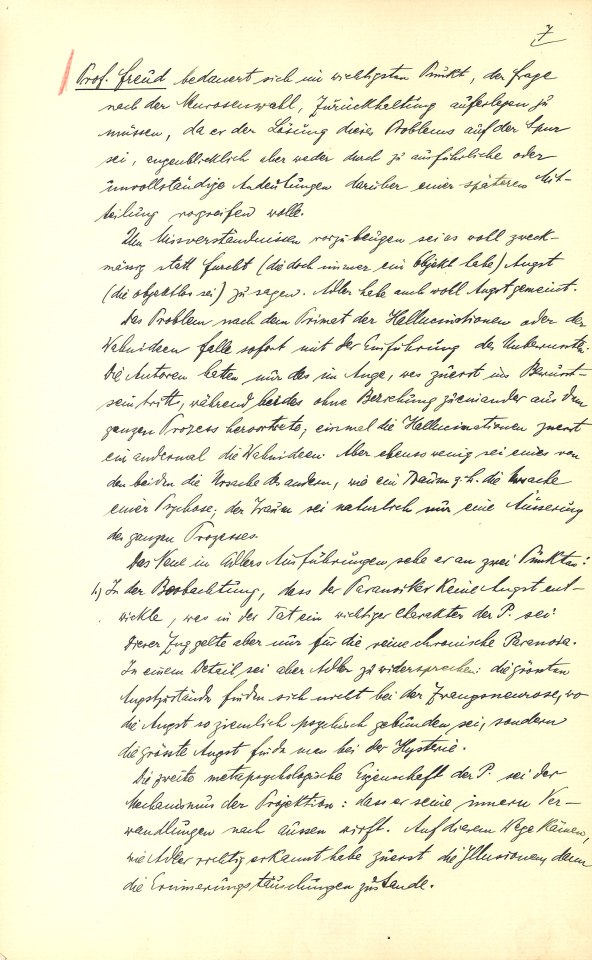 7
Prof. Freud bedauert sich im wichtigsten Punkt, der Frage
nach der Neurosenwahl, Zurückhaltung auferlegen zu
müssen, da er der Lösung dieses Problems auf der Spur
sei, augenblicklich aber weder durch zu ausführliche oder
unvollständige Andeutungen darüber einer späteren Mit-
teilung vorgreifen wolle.
Um Missverständnissen vorzubeugen sei es wohl zweck-
mässig statt Furcht (die doch immer ein Objekt habe) Angst
(die objektlos sei) zu sagen. Adler habe auch wohl Angst gemeint.
Das Problem nach dem Primat der Hallucinationen oder der
Wahnideen falle sofort mit der Einführung des Unbewussten.
Die Autoren hätten nur das im Auge, was zuerst ins Bewusst-
sein tritt, während beides ohne Beziehung zueinander aus dem
ganzen Prozess hervortrete; einmal die Hallucinationen zuerst
ein andermal die Wahnideen. Aber ebensowenig sei eines von
den beiden die Ursache des andern, wie ein Traum z. B. die Ursache
einer Psychose; der Traum sei natürlich nur eine Äusserung
des ganzen Prozesses.
Das Neue in Adlers Ausführungen sehe er an zwei Punkten:
1.) In der Beobachtung, dass der Paranoiker keine Angst ent-
wickle, was in der Tat ein wichtiger Charakter der P. sei
Dieser Zug gelte aber nur für die reine chronische Paranoia.
In einem Detail sei aber Adler zu widersprechen: die grössten
Angstzustände finden sich nicht bei der Zwangsneurose, wo
die Angst so ziemlich psychisch gebunden sei, sondern
die grösste Angst finde man bei der Hysterie.
Die zweite metapsychologische Eigenschaft der P. sei der
Mechanismus der Projektion: dass er seine innern Ver-
wandlungen nach aussen wirft. Auf diesem Wege kämen,
wie Adler richtig erkannt habe zuerst die Illusionen, dann
die Erinnerungstäuschungen zustande.